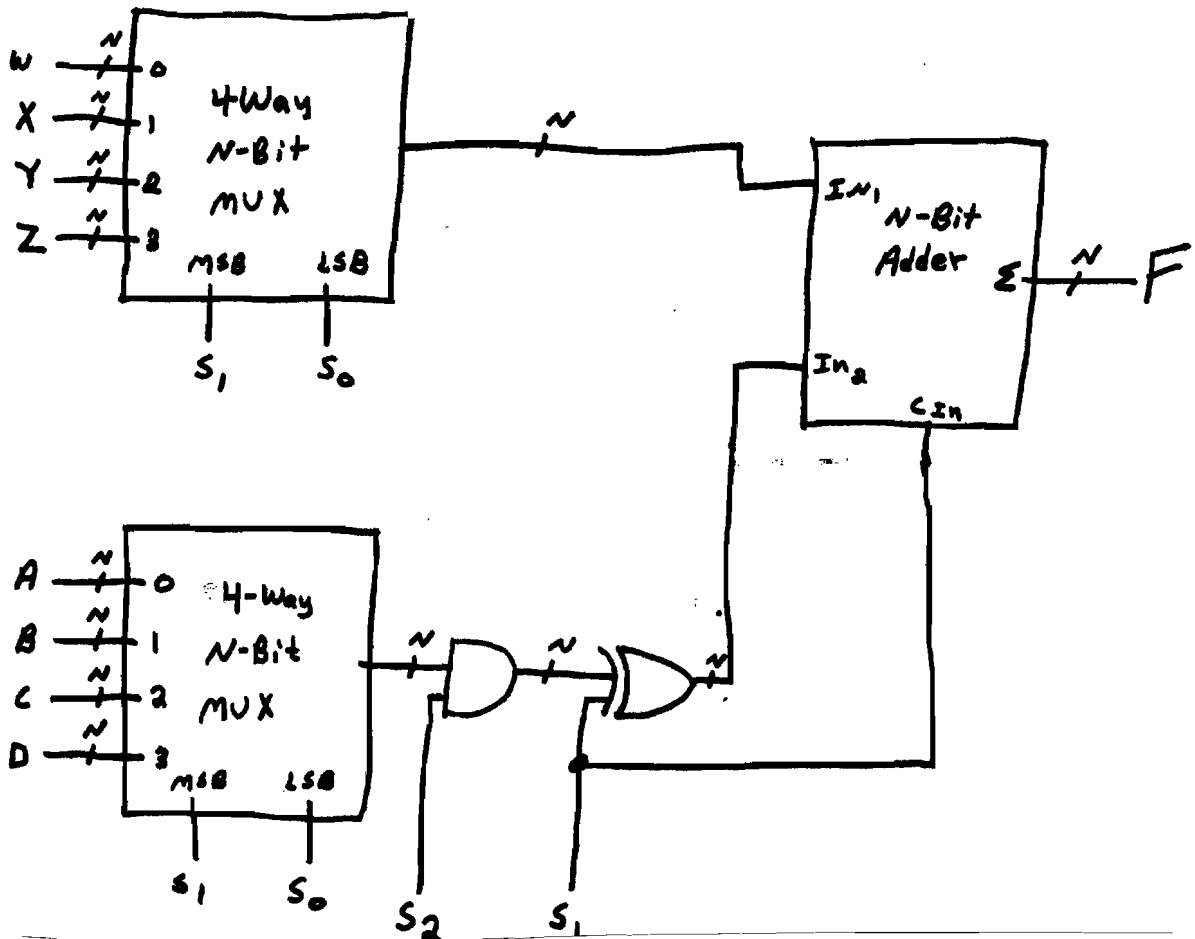 W N 0
X N 1
Y N 2
Z N 3
4 Way
N-Bit
MUX
MSB LSB
S1 S0
N
IN1
N-Bit
Adder
Σ N F
In2
CIn
A N 0
B N 1
C N 2
D N 3
4-Way
N-Bit
MUX
MSB LSB
S1 S0
N N N
S2 S1